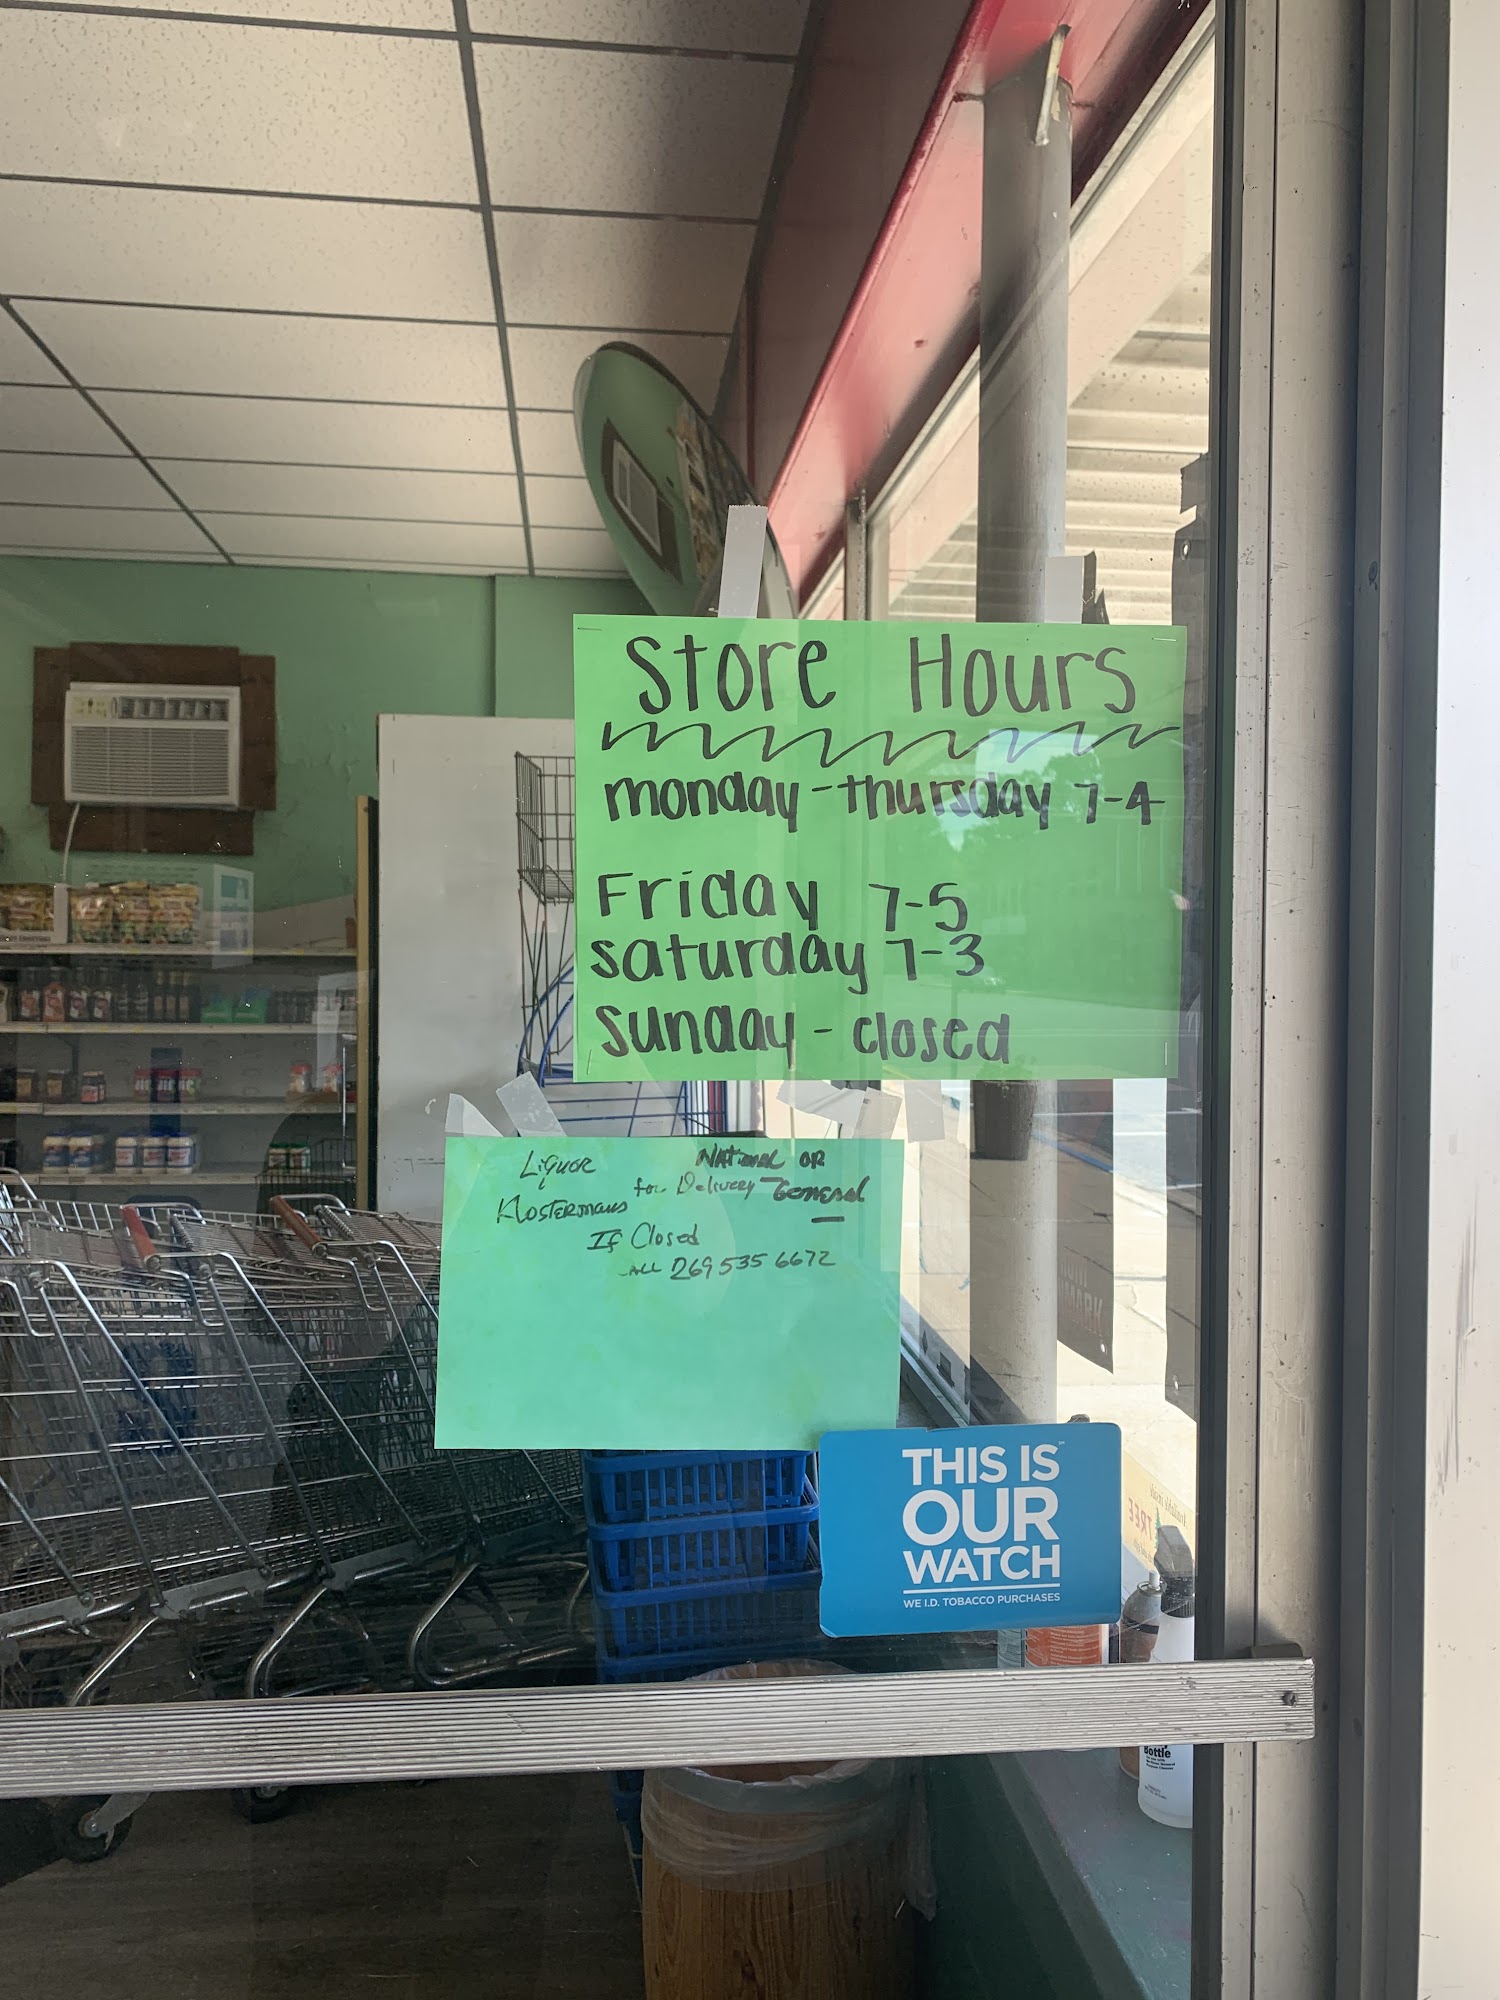 Store Hours
monday-thursday 7-4
Friday 7-5
saturday 7-3
sunday - closed
Liquor National or
Klostermans for Delivery - General
If Closed
call 269 535 6672
THIS IS
OUR
WATCH
WE I.D. TOBACCO PURCHASES
Bottle